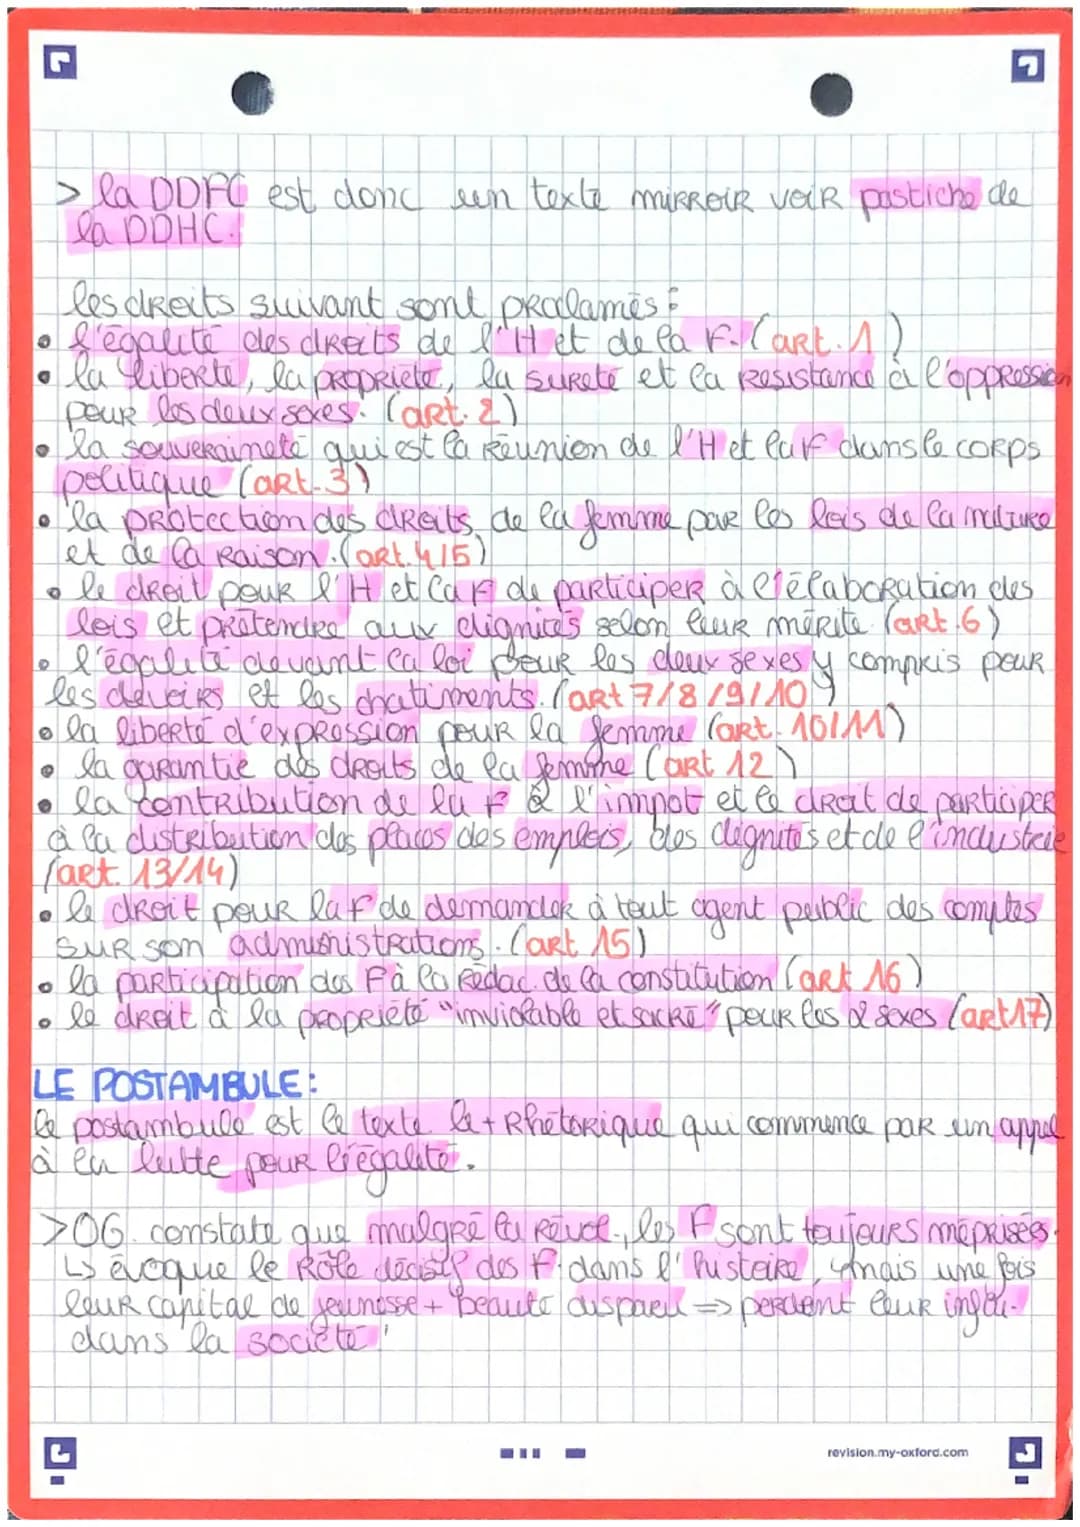 > la DDFC est donc un texte mirroir voir pastiche de
la DDHC.
les droits suivant sont proclamés :
• l'égalité des droits de l'H et de la F. (art. 1)
• la liberté, la propriété, la sureté et la résistance à l'oppression
pour les deux sexes. (art. 2)
• la souveraineté qui est la réunion de l'H et la F dans le corps
politique (art. 3)
• la protection des droits de la femme par les lois de la nature
et de la raison. (art. 4/5)
• le droit pour l'H et la F de participer à l'élaboration des
lois et prétendre aux dignités selon leur mérite (art. 6)
• l'égalité devant la loi pour les deux sexes y compris pour
les devoirs et les chatiments. (art 7/8/9/10)
• la liberté d'expression pour la femme (art. 10/11)
• la garantie des droits de la femme (art 12)
• la contribution de la F à l'impot et le droit de participer
à la distribution des places des emplois, des dignités et de l'industrie
(art. 13/14)
• le droit pour la F de demander à tout agent public des comptes
sur son administrations. (art 15)
• la participation des F à la rédac. de la constitution (art 16)
• le droit à la propriété "inviolable et sacré" pour les 2 sexes (art 17)
LE POSTAMBULE :
le postambule est le texte le + rhétorique qui commence par un appel
à la lutte pour l'égalité.
> OG. constate que malgré la révol., les F sont toujours méprisées.
↳ évoque le rôle décisif des F. dans l'histoire, mais une fois
leur capital de jeunesse + beauté disparu => perdent leur influ.
dans la société !
revision.my-oxford.com